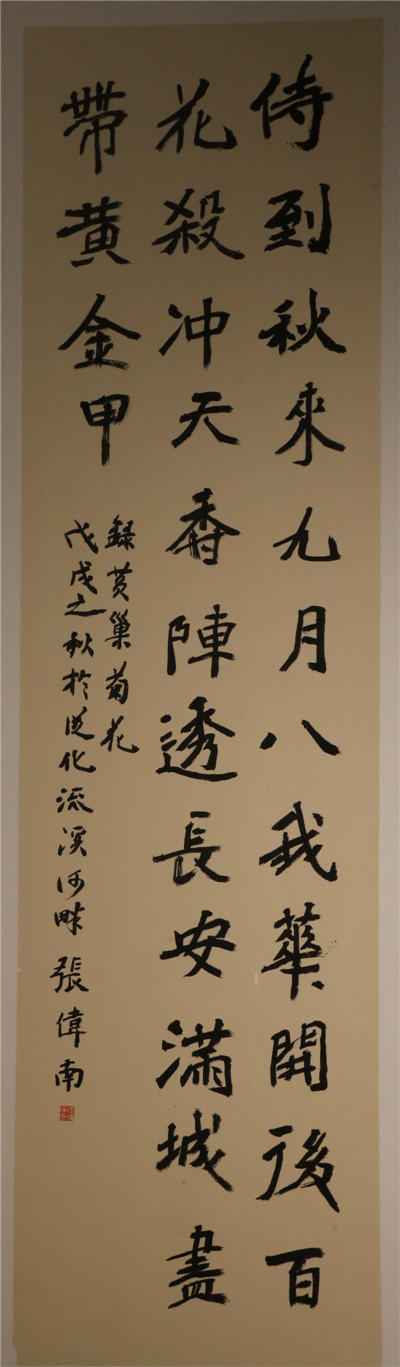 侍到秋來九月八我華開後百
花殺冲天香陣透長安滿城盡
帶黄金甲
録黄巢菊花
戊戌之秋於從化流溪河畔 張偉南